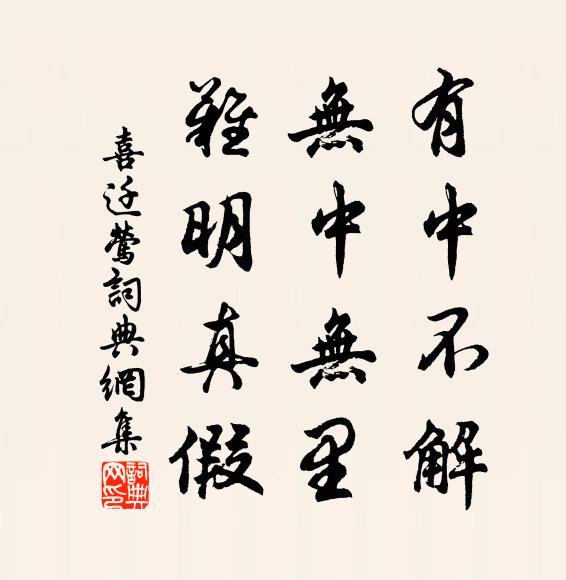 有中不解
無中無里
難明真假
喜迁鶯詞典網集
詞典网印